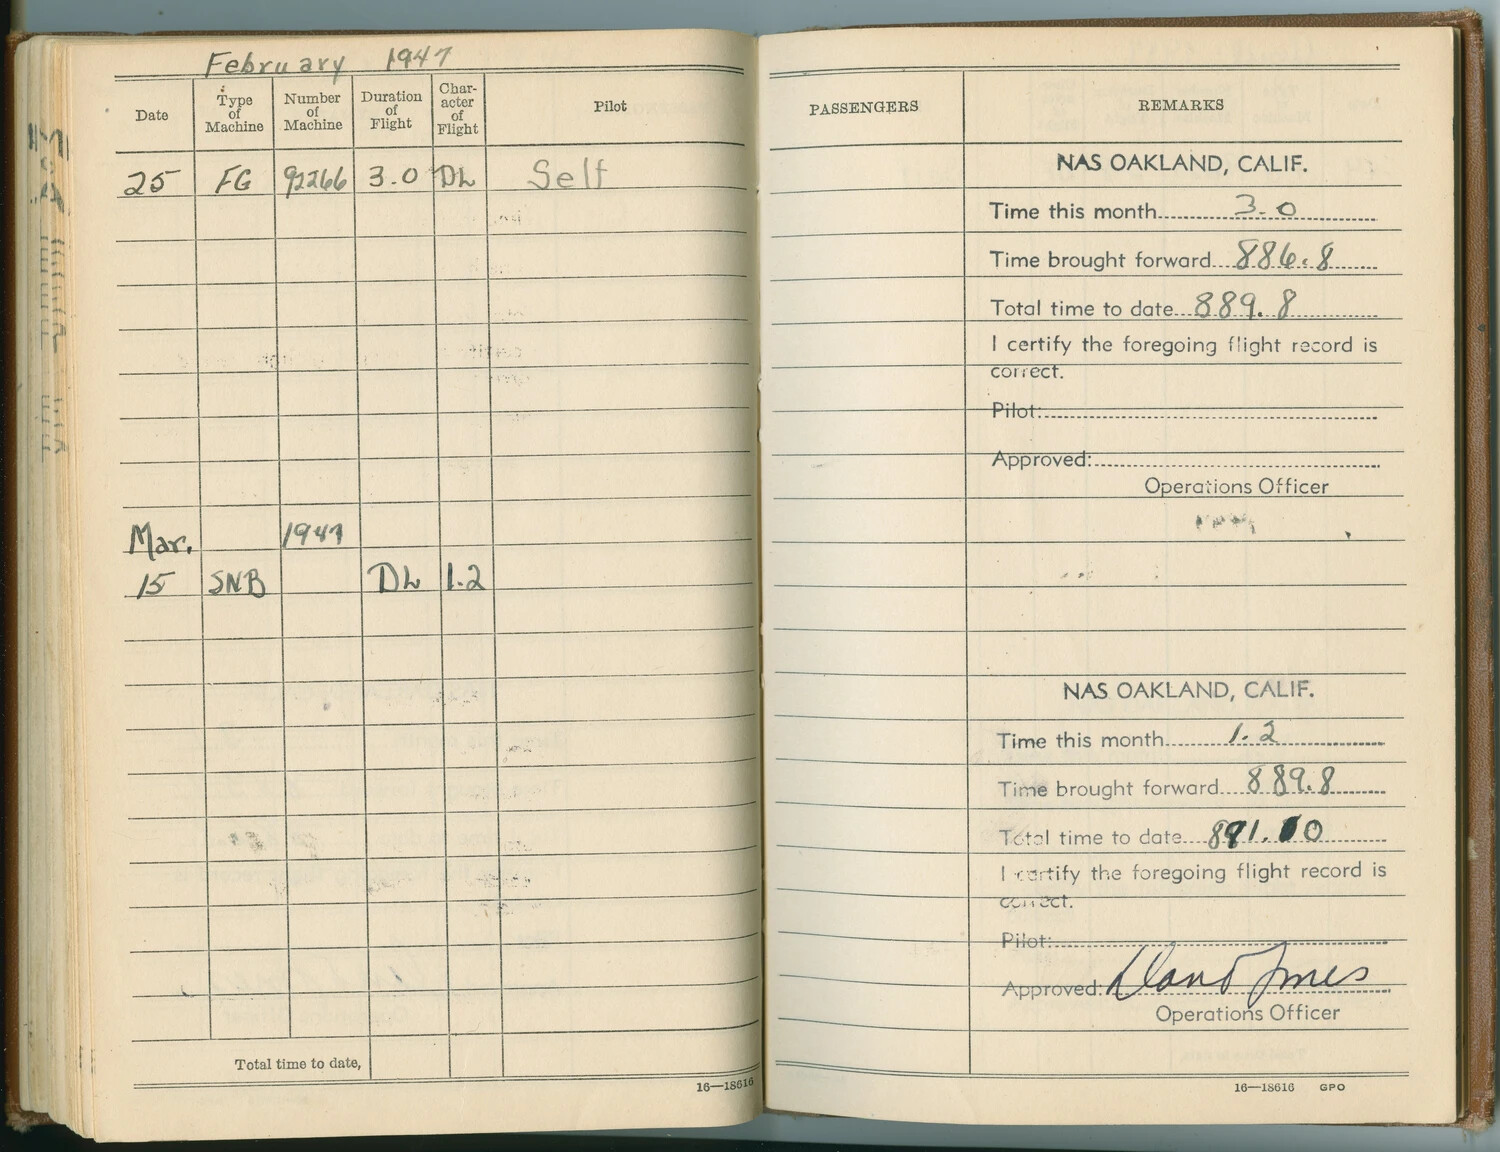 February 1947
Date Type of Machine Number of Machine Duration of Flight Char- acter of Flight Pilot
25 FG 92266 3.0 DL Self
Mar. 1947
15 SNB DL 1.2
Total time to date,
16—18616
PASSENGERS REMARKS
NAS OAKLAND, CALIF.
Time this month 3.0
Time brought forward 886.8
Total time to date 889.8
I certify the foregoing flight record is
correct.
Pilot:
Approved:
Operations Officer
NAS OAKLAND, CALIF.
Time this month 1.2
Time brought forward 889.8
Total time to date 891.00
I certify the foregoing flight record is
correct.
Pilot:
Approved:
Operations Officer
16—18616 GPO